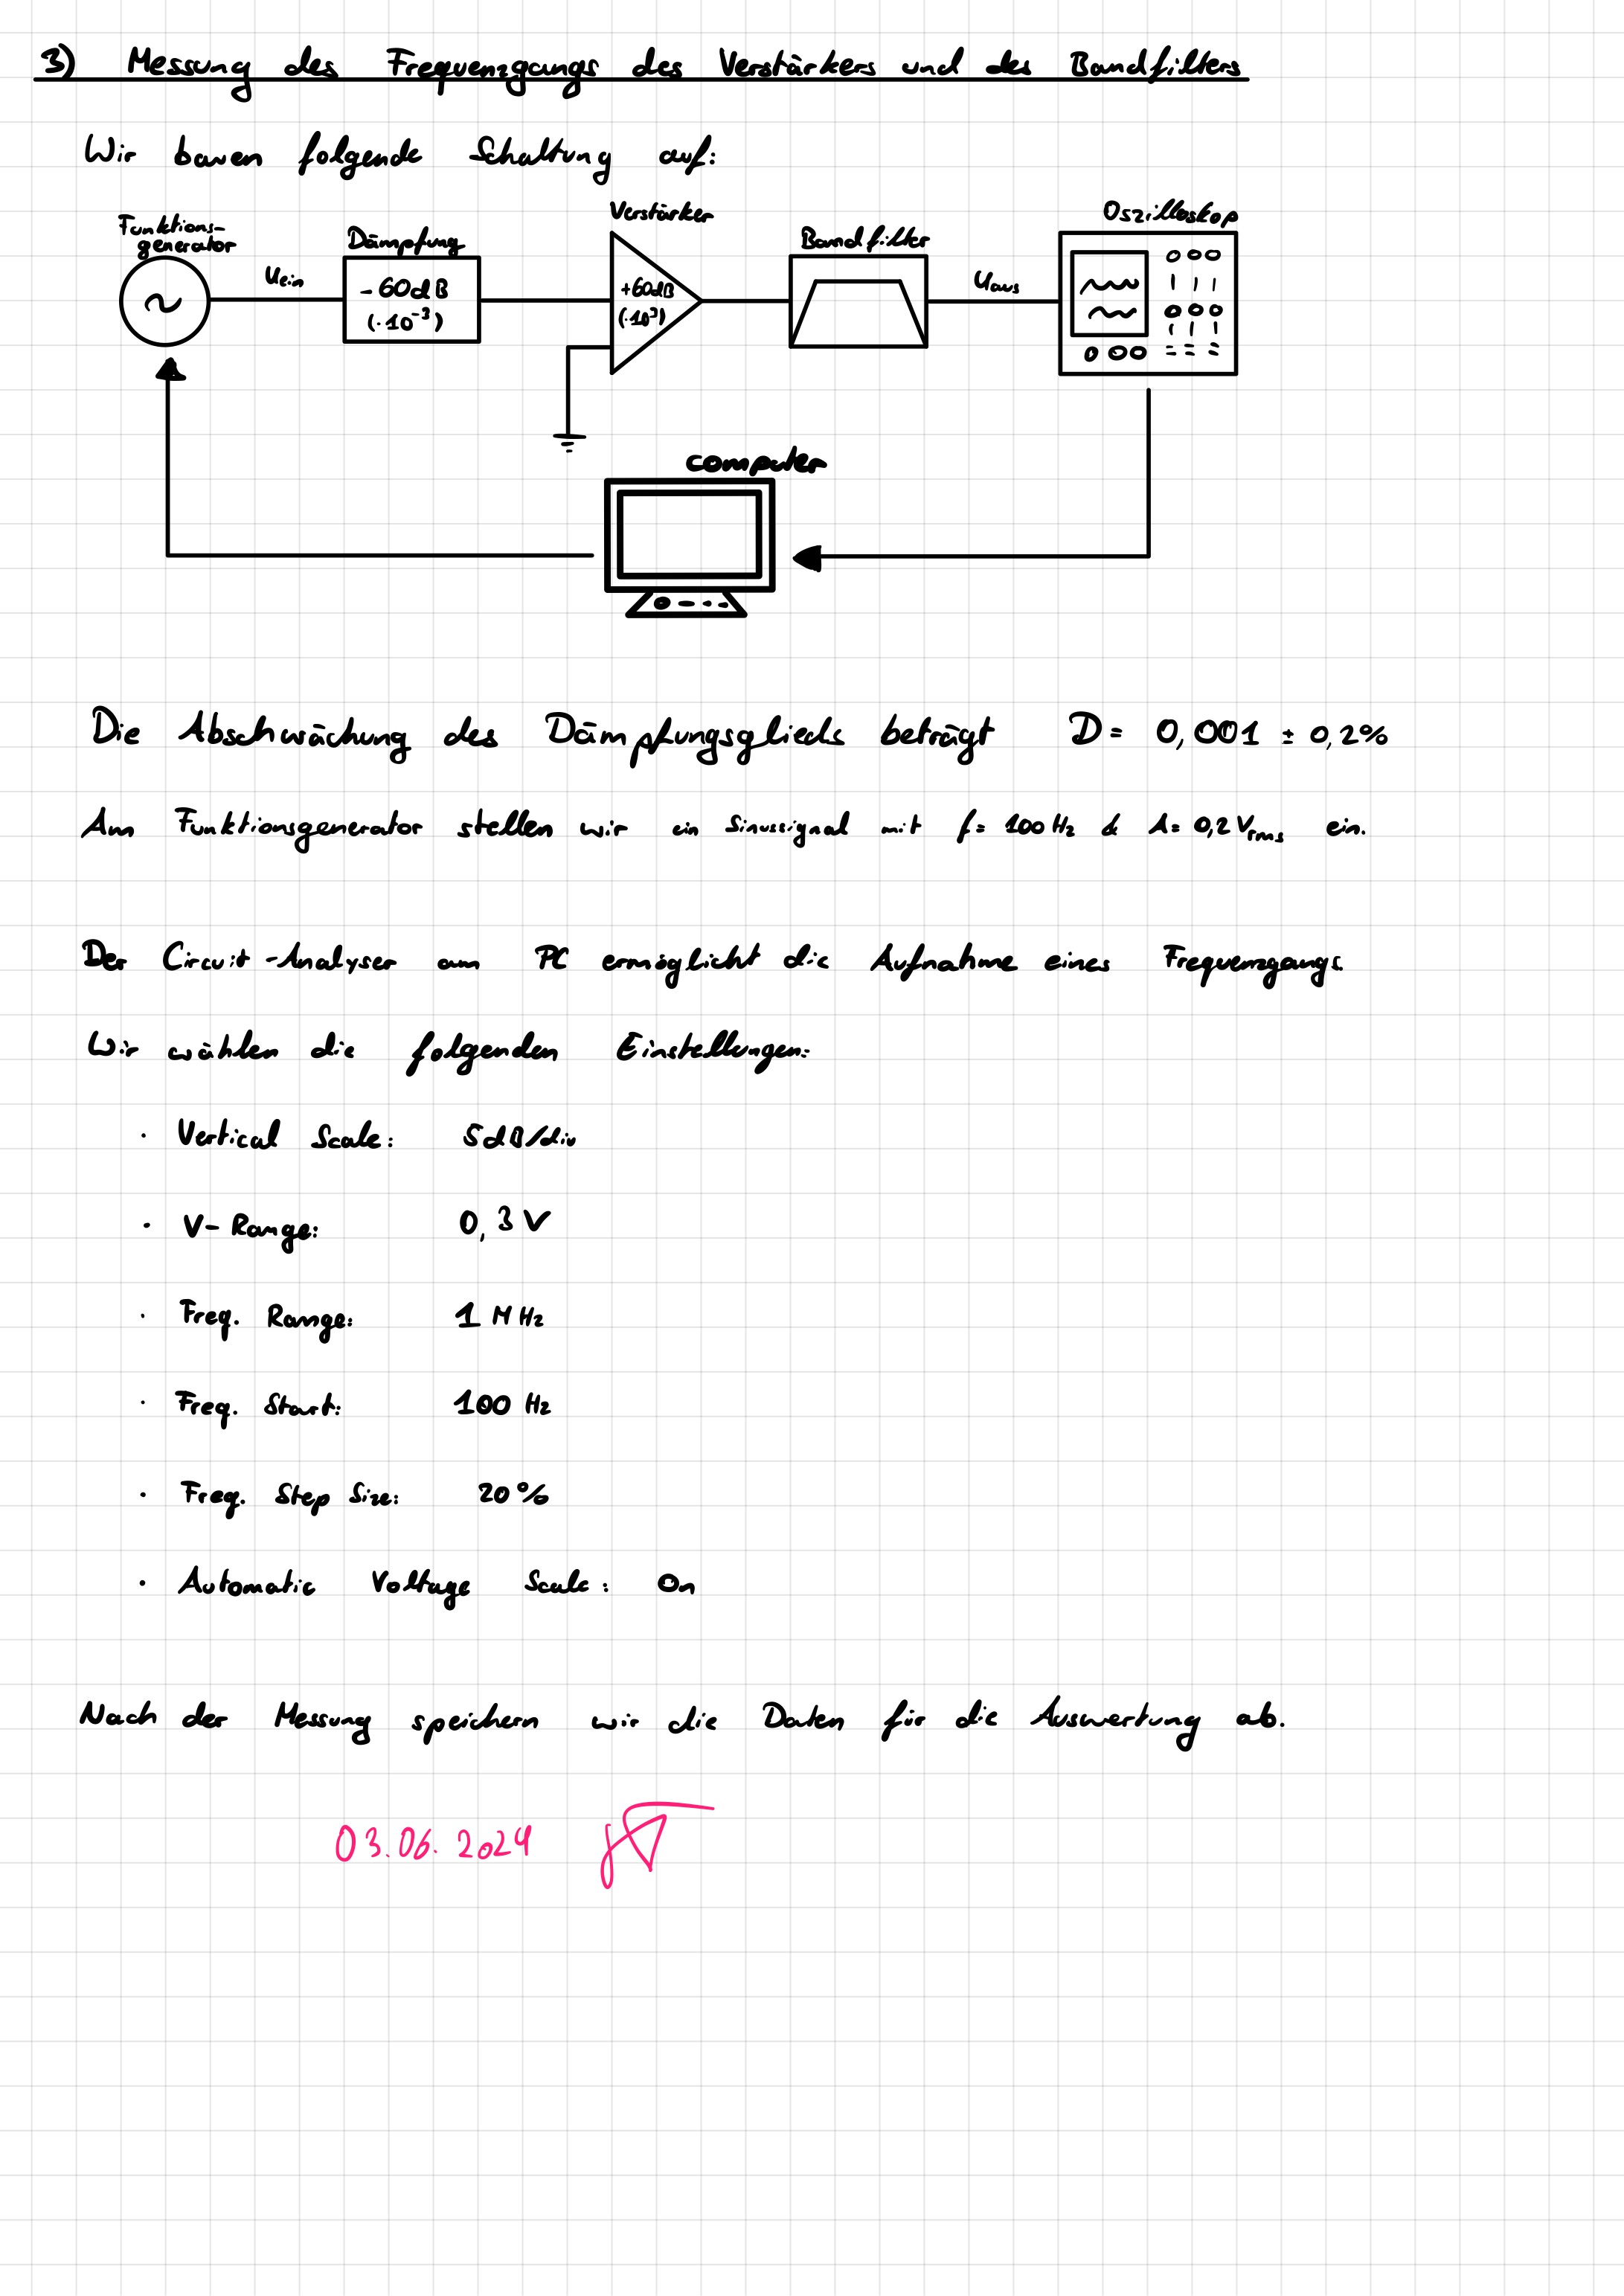 3) Messung des Frequenzgangs des Verstärkers und des Bandfilters
Wir bauen folgende Schaltung auf:
Funktions-
generator
Uein
Dämpfung
-60dB
(·10⁻³)
Verstärker
+60dB
(·10³)
Bandfilter
Uaus
Oszilloskop
computer
Die Abschwächung des Dämpfungsglieds beträgt D = 0,001 ± 0,2%
Am Funktionsgenerator stellen wir ein Sinussignal mit f = 100 Hz & A = 0,2 Vrms ein.
Der Circuit-Analyser am PC ermöglicht die Aufnahme eines Frequenzgangs.
Wir wählen die folgenden Einstellungen:
· Vertical Scale: 5dB/div
· V-Range: 0,3 V
· Freq. Range: 1 MHz
· Freq. Start: 100 Hz
· Freq. Step Size: 20%
· Automatic Voltage Scale: On
Nach der Messung speichern wir die Daten für die Auswertung ab.
03.06.2024